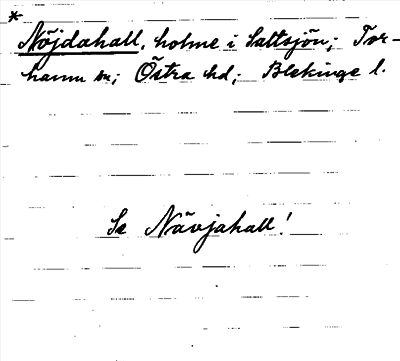 *
Nöjdahall, holme i Saltsjön; Tor-
hamn sn; Östra hd; Blekinge l.
Se Nävjahall!